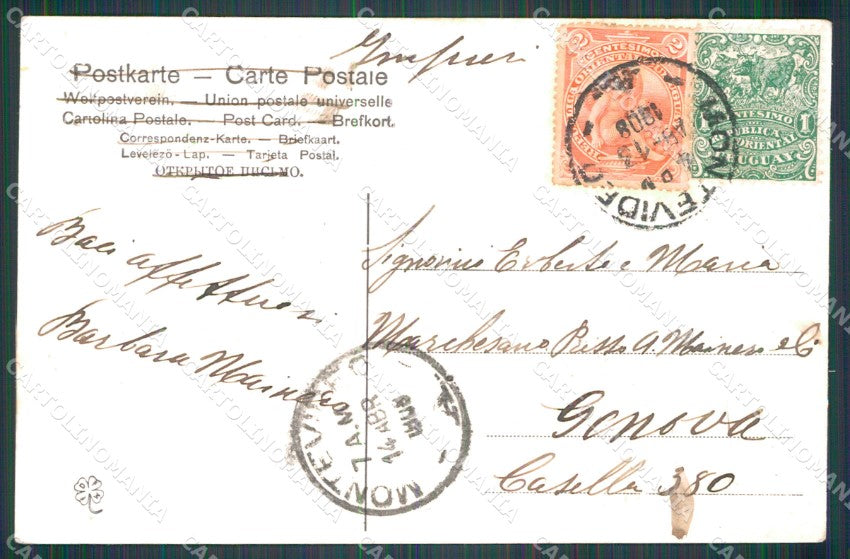 Postkarte – Carte Postale
Weltpostverein. – Union postale universelle
Cartolina Postale. – Post Card. – Brefkort.
Correspondenz-Karte. – Briefkaart.
Levelező-Lap. – Tarjeta Postal.
ОТКРЫТОЕ ПИСЬМО.
2 CENTESIMOS 2
1 CENTESIMO 1
REPUBLICA
ORIENTAL
URUGUAY
MONTEVIDEO
4 PM
ABR 13
1908
Baci affettuosi
Barbara Mainero
Signorini Erberto e Maria
Marchesano Presso A. Mainero & Ci
Genova
Casella 380
MONTEVIDEO
7 A.M.
14 ABR
1908
CARTOLINOMANIA